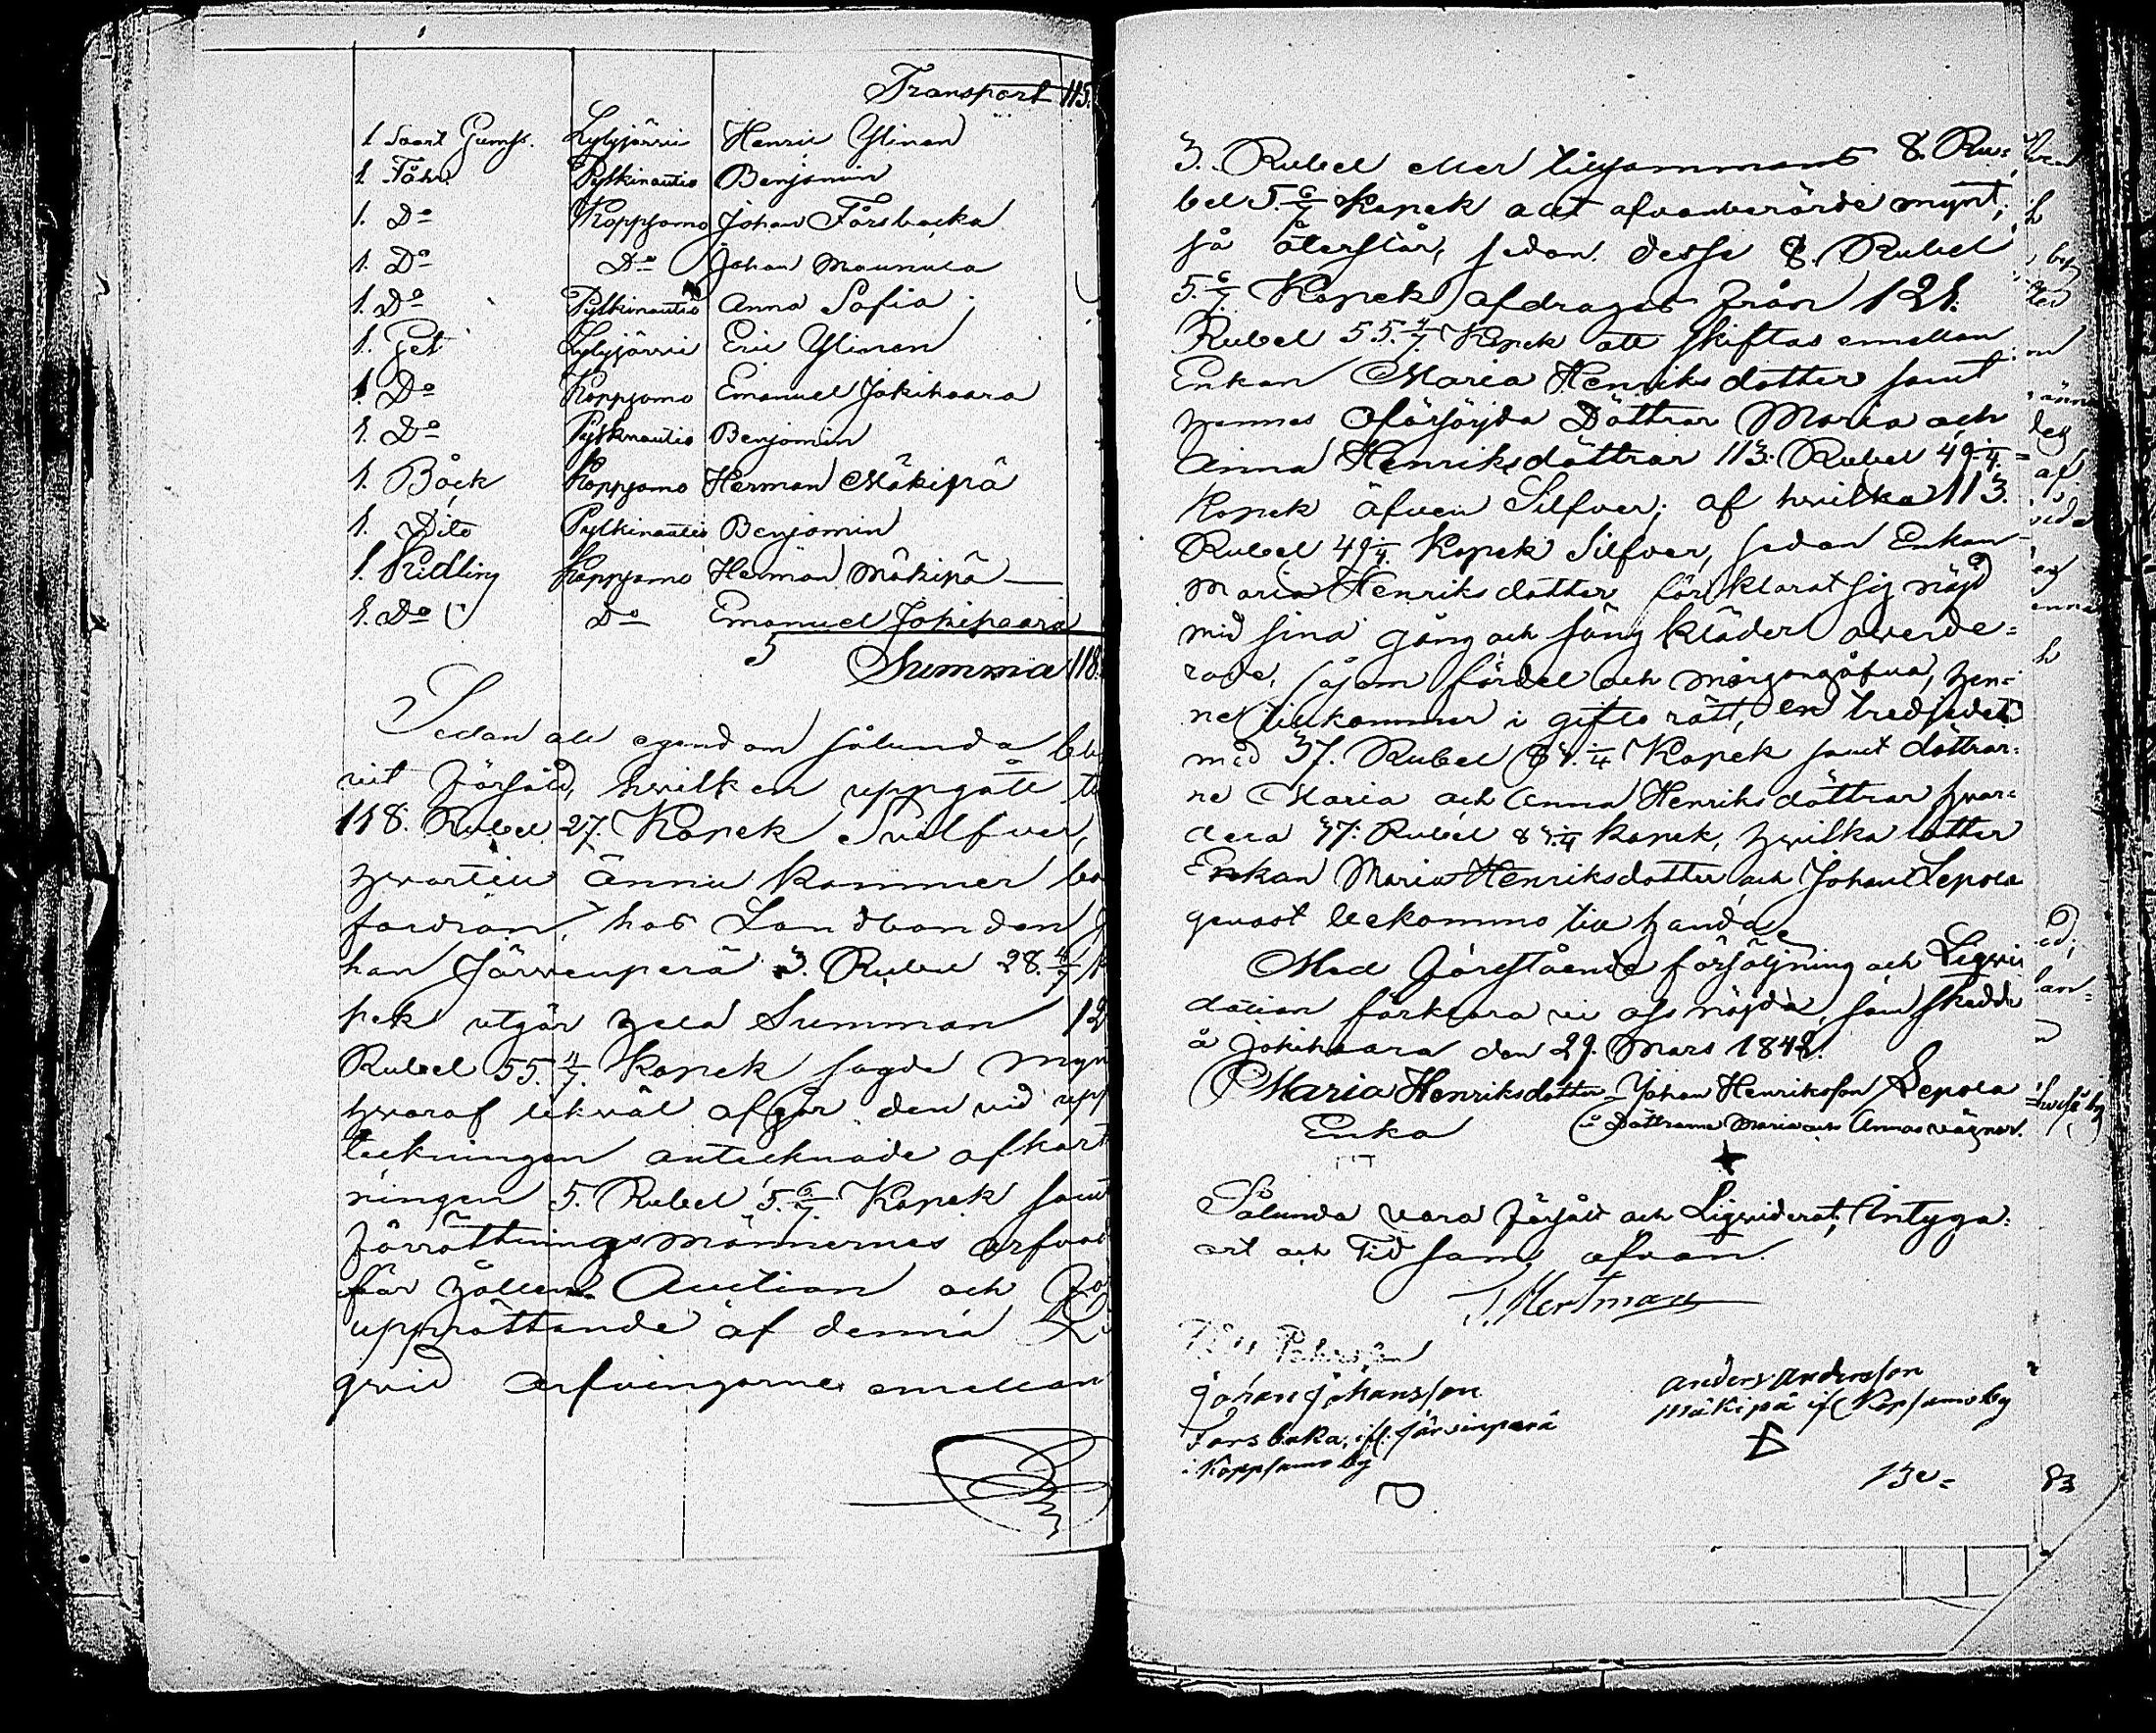 Transport 115.
1 Svart Gumss. Lylyjärvi Henric Ylinen
1. Fåhr Pylkinautio Benjamin
1. Do Koppsamo Johan Fårsbacka
1. Do Do Johan Maunula
1. Do Pylkinautio Anna Sofia
1. Get Lylyjärvi Eric Ylinen
1. Do Koppsamo Emanuel Jokihaara
1. Do Pylkinautio Benjamin
1. Båck Koppsamo Herman Mäkipä
1. Dito Pylkinautio Benjamin
1. Kidling Koppsamo Herman Mäkipä
1. Do Do Emanuel Jokihaara
Summa 118.
Sedan all egendom sålunda
vit försåld, hvilken uppgått
118. Rubel 27. Kopek Silfver,
hvartill ännu kommer
fordran hos Landbonden
han Järvenperä 3. Rubel 28. 4/7
pek utgör hela Summan 12
Rubel 55. 4/7. Kopek sagde myn
hvaraf likväl afgår den vid upp
teckningen antecknade afkort
ningen 5. Rubel 5. 6/7. Kopek samt
förrättningsmännernes arfvod
för hållen Auction och
upprättande af denna
qvid arfvingarne emellan
3. Rubel eller tillsammans 8. Ru=
bel 5. 6/7 Kopek allt ofvanberörde mynt;
så återstår, sedan desse 8. Rubel
5. 6/7. Kopek afdragas från 121.
Rubel 55. 4/7. Kopek att skiftas emellan
Enkan Maria Henriksdotter samt
hennes oförsörjda Döttrar Maria och
Anna Henriksdöttrar 113. Rubel 49. 1/4.
Kopek äfven Silfver; af hvilka 113.
Rubel 49 1/4 Kopek Silfver, sedan Enkan
Maria Henriksdotter förklarat sig nöjd
med sina gång och säng kläder averde=
rade, såsom fördel och morgongåfva, hen=
ne tillkommer i gifto rätt, en tredjedel
med 37. Rubel 83. 1/4 Kopek samt döttrar=
ne Maria och Anna Henriksdöttrar hvar=
dera 37. Rubel 83. 1/4 kopek, hvilka lotter
Enkan Maria Henriksdotter och Johan Lepola
genast bekommo till handa.
Med förestående försäljning och Liqvi
dation förklara vi oss nöjda, som skedde
å Jokihaara den 29. Mars 1848.
Maria Henriksdotter Johan Henriksson Lepola
Enka å Döttrarna Maria och Annas vägnar.
Sålunda vara försåldt och Liqviderat; Intyga:
ort och Tid som ofvan.
Johan Johansson
Forsbaka ifl. Järvinperä
i Koppsamo by
Anders Andersson
Mäkipä ifl Kopsamo by
83